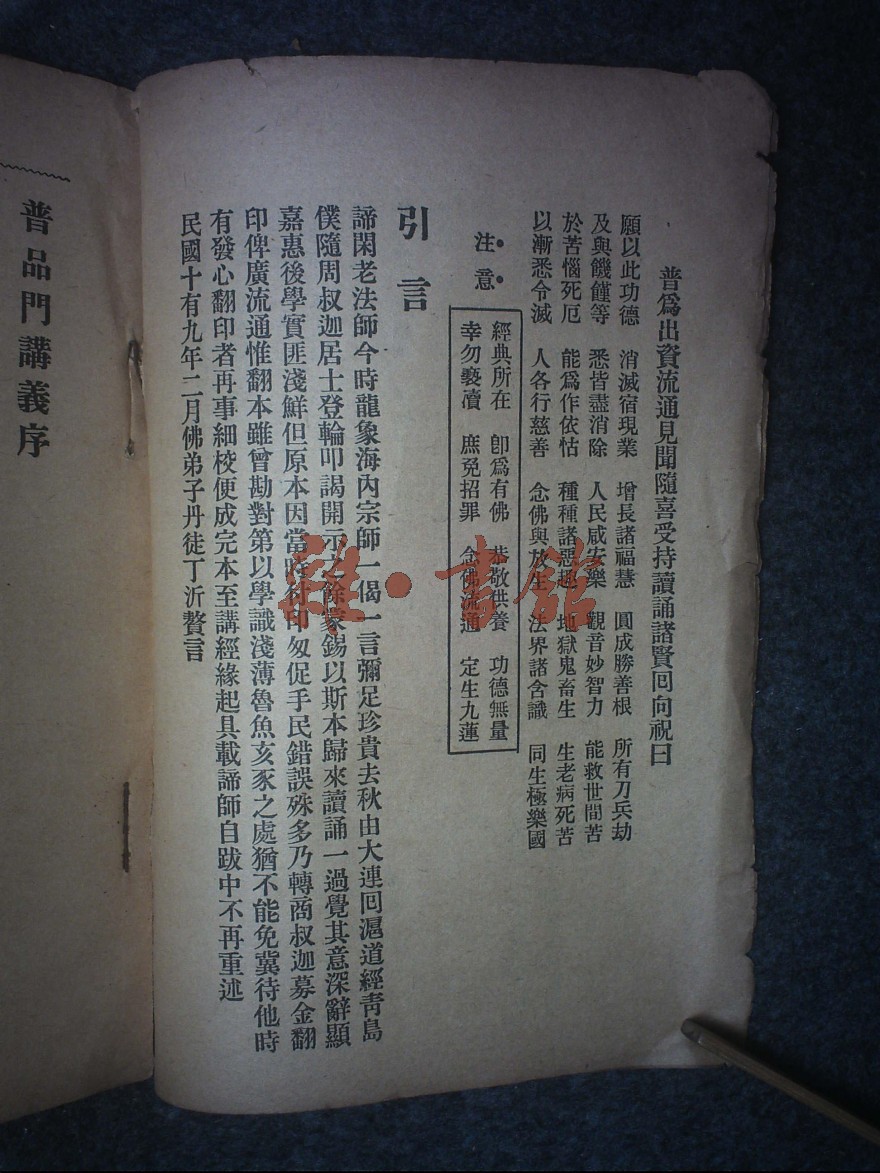 普爲出資流通見聞隨喜受持讀誦諸賢回向祝曰
願以此功德 消滅宿現業 增長諸福慧 圓成勝善根 所有刀兵劫
及與饑饉等 悉皆盡消除 人民咸安樂 觀音妙智力 能救世間苦
於苦惱死厄 能爲作依怙 種種諸惡趣 地獄鬼畜生 生老病死苦
以漸悉令滅 人各行慈善 念佛與放生 法界諸含識 同生極樂國
注意
經典所在 卽爲有佛 恭敬供養 功德無量
幸勿褻瀆 庶免招罪 念佛流通 定生九蓮
引言
諦閑老法師今時龍象海內宗師一偈一言彌足珍貴去秋由大連回滬道經靑島
僕隨周叔迦居士登輪叩謁開示之餘蒙錫以斯本歸來讀誦一過覺其意深辭顯
嘉惠後學實匪淺鮮但原本因當時付印匆促手民錯誤殊多乃轉商叔迦募金翻
印俾廣流通惟翻本雖曾勘對第以學識淺薄魯魚亥豕之處猶不能免冀待他時
有發心翻印者再事細校便成完本至講經緣起具載諦師自跋中不再重述
民國十有九年二月佛弟子丹徒丁沂贅言
普品門講義序
雜·書館